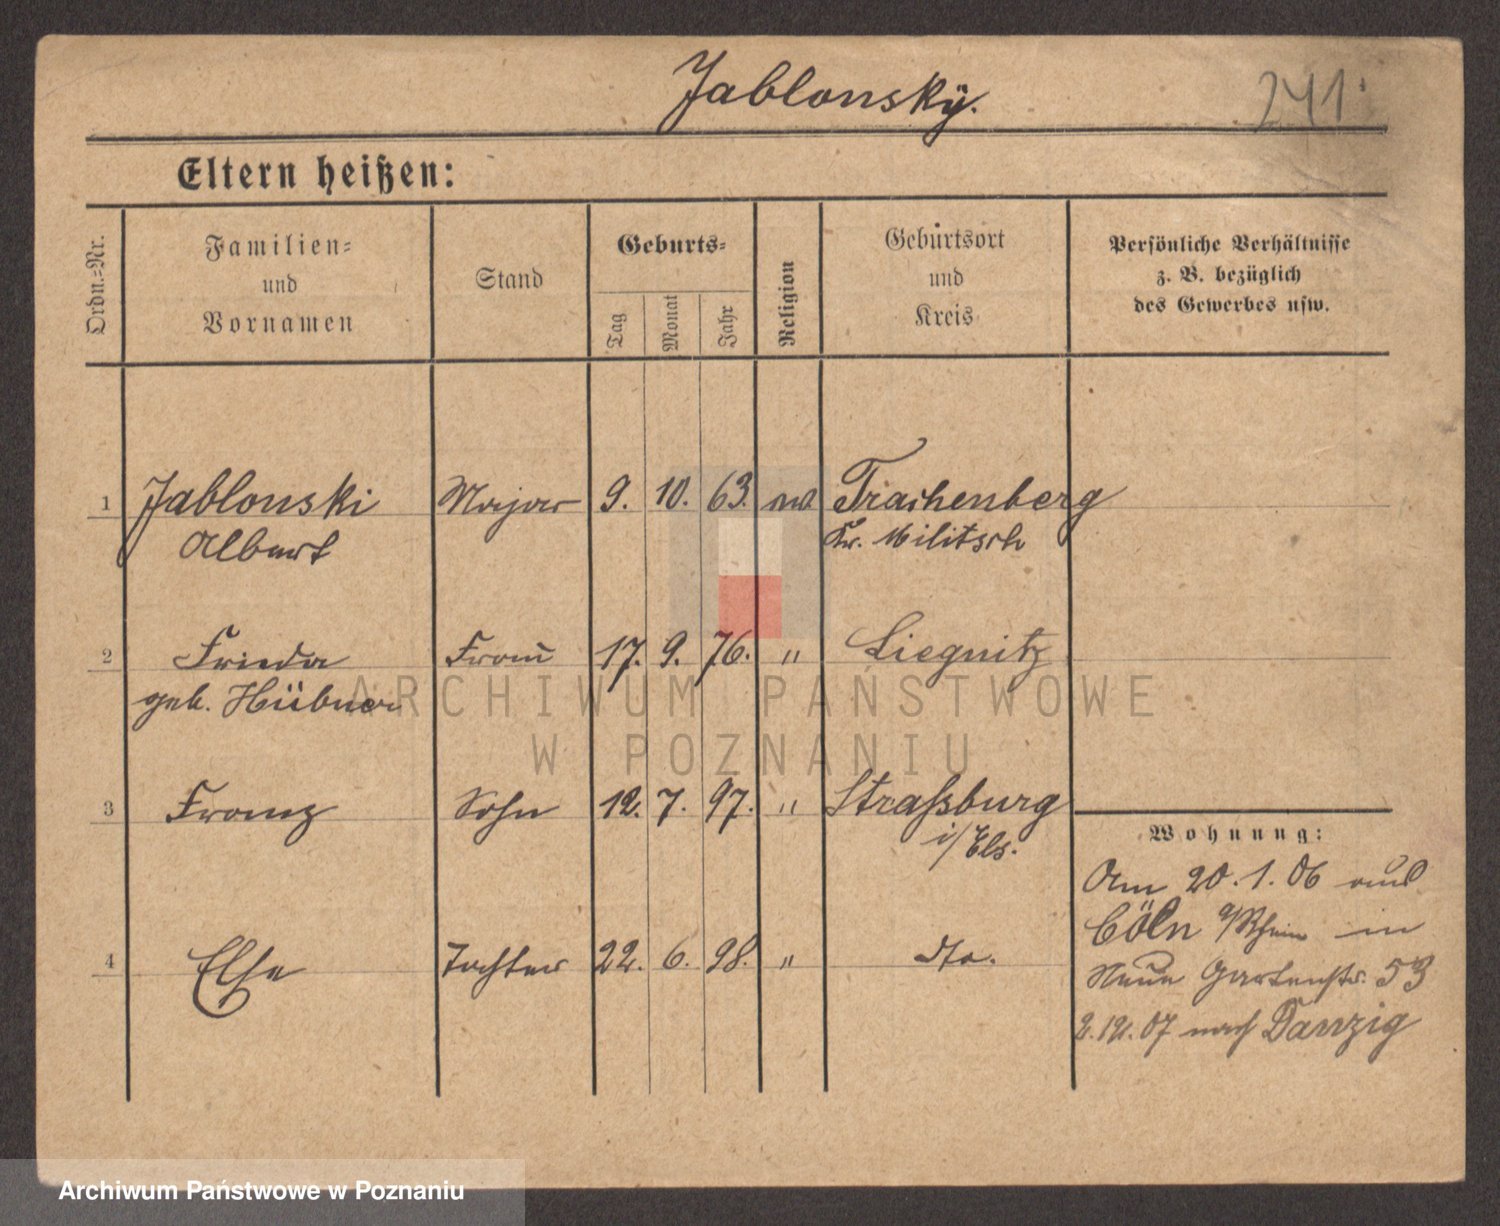 Jablonsky.
241.
Eltern heißen:
Ordn.=Nr.
Familien=
und
Vornamen
Stand
Geburts=
Tag
Monat
Jahr
Religion
Geburtsort
und
Kreis
Persönliche Verhältnisse
z. B. bezüglich
des Gewerbes usw.
1 Jablonski Major 9. 10. 63. Trachenberg
Albert Kr. Militsch
2 Frieda Frau 17. 9. 76. " Liegnitz
geb. Hübner
3 Franz Sohn 12. 7. 97. " Straßburg
i/Els.
4 Else Tochter 22. 6. 98. " dto.
Wohnung:
Am 20.1.06 aus
Cöln a/Rhein in
Neue Gartenstr. 53
2.12.07 nach Danzig
ARCHIWUM PAŃSTWOWE
W POZNANIU
Archiwum Państwowe w Poznaniu